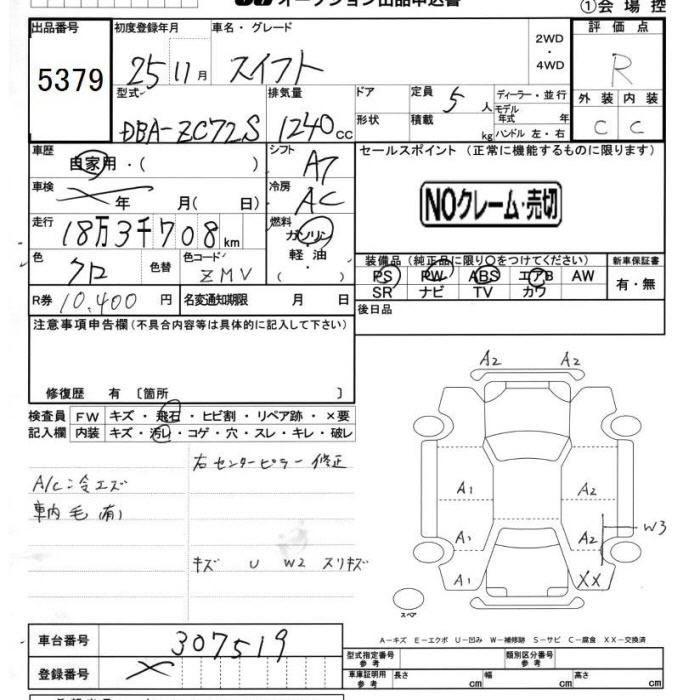 オークション出品申込書
①会場控
出品番号 初度登録年月 車名・グレード 2WD・4WD 評価点
5379 25 11月 スイフト R
型式 排気量 ドア 定員 5人 ディーラー・並行 外装 内装
DBA-ZC72S 1240cc 形状 積載 kg モデル年式 年 ハンドル 左・右 C C
車歴 自家用・( ) シフト A7 セールスポイント (正常に機能するものに限ります)
車検 年 月( 日) 冷房 AC NOクレーム・売切
走行 18万3千708km 燃料 ガソリン・軽油 ( )
色 クロ 色替 色コード ZMV
装備品(純正品に限り○をつけてください) 新車保証書
PS PW ABS エアB AW 有・無
SR ナビ TV カワ
R券 10,400円 名変通知期限 月 日 後日品
注意事項申告欄(不具合内容等は具体的に記入して下さい)
修復歴 有 〔箇所 〕
検査員 FW キズ・飛石・ヒビ割・リペア跡・×要
記入欄 内装 キズ・汚レ・コゲ・穴・スレ・キレ・破レ
右センターピラー修正
A/C:冷エズ
車内毛(有)
キズ U W2 スリキズ
A2 A2
A1 A2
A1 A2 W3
A1 XX
スペア
A-キズ E-エクボ U-凹み W-補修跡 S-サビ C-腐食 XX-交換済
車台番号 307519
登録番号
型式指定番号 参考 類別区分番号 参考
車庫証明用 参考 長さ cm 幅 cm 高さ cm